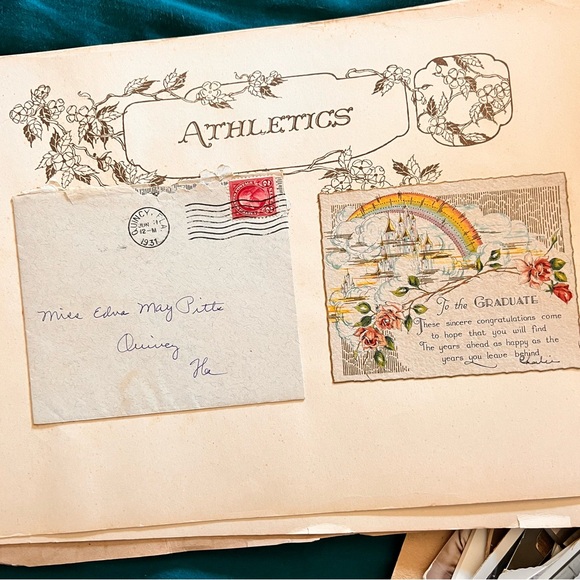 ATHLETICS
QUINCY, FLA
JUN
12-M
1931
Miss Edna May Pitts
Quincy
Fla
To the GRADUATE
These sincere congratulations come
to hope that you will find
The years ahead as happy as the
years you leave behind.
Charlie